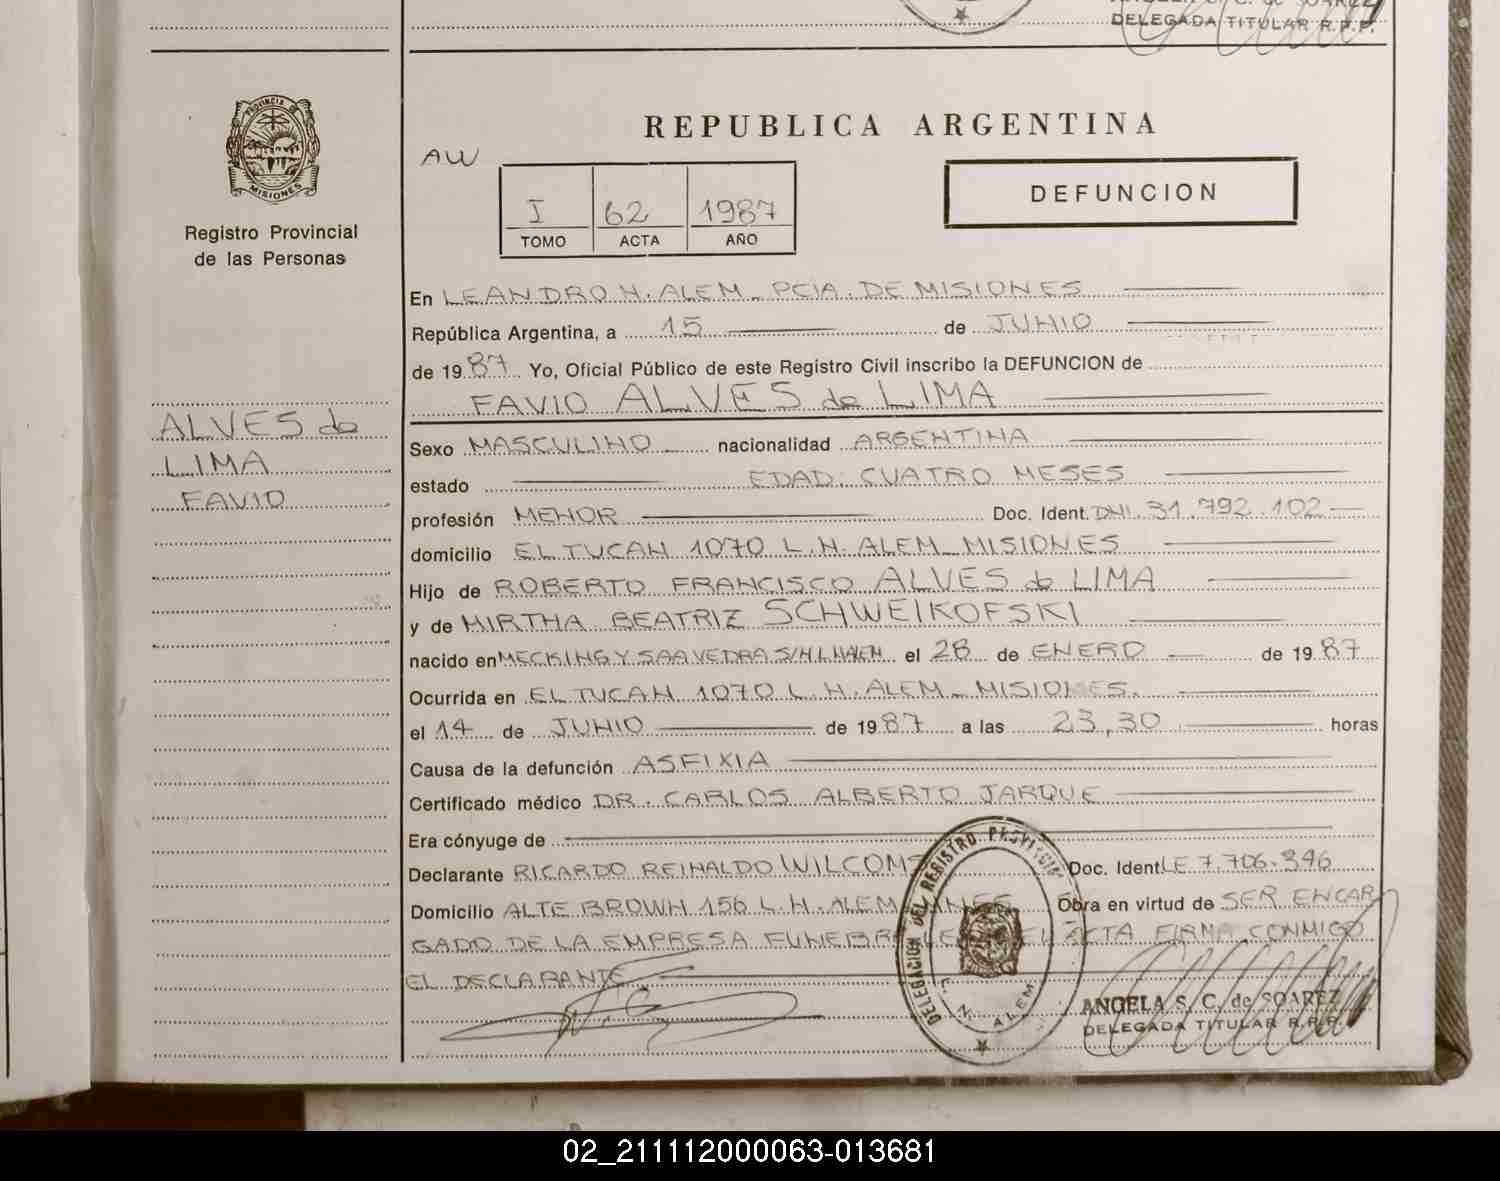 DELEGADA TITULAR R.P.P.
PROVINCIA DE
MISIONES
Registro Provincial
de las Personas
ALVES de
LIMA
FAVIO
REPUBLICA ARGENTINA
AW
I 62 1987
TOMO ACTA AÑO
DEFUNCION
En LEANDRO N. ALEM - PCIA. DE MISIONES
República Argentina, a 15 de JUNIO
de 1987 Yo, Oficial Público de este Registro Civil inscribo la DEFUNCION de
FAVIO ALVES de LIMA
Sexo MASCULINO nacionalidad ARGENTINA
estado EDAD: CUATRO MESES
profesión MENOR Doc. Ident. DNI. 31.792.102
domicilio EL TUCAN 1070 L.N. ALEM - MISIONES
Hijo de ROBERTO FRANCISCO ALVES de LIMA
y de MIRTHA BEATRIZ SCHWEIKOFSKI
nacido en MECKING Y SAAVEDRA S/N L.N.ALEM el 28 de ENERO de 1987
Ocurrida en EL TUCAN 1070 L.N. ALEM - MISIONES.
el 14 de JUNIO de 1987 a las 23,30 horas
Causa de la defunción ASFIXIA
Certificado médico DR. CARLOS ALBERTO JARQUE
Era cónyuge de
Declarante RICARDO REINALDO WILCOMS Doc. Ident. LE 7.706.346
Domicilio ALTE BROWN 156 L.N. ALEM Obra en virtud de SER ENCAR
GADO DE LA EMPRESA FUNEBRE ACTA FIRMA CONMIGO
EL DECLARANTE
DELEGACION DEL REGISTRO PROVINCIAL
L. N. ALEM
ANGELA S. C. de SOAREZ
DELEGADA TITULAR R.P.P.
02_211112000063-013681